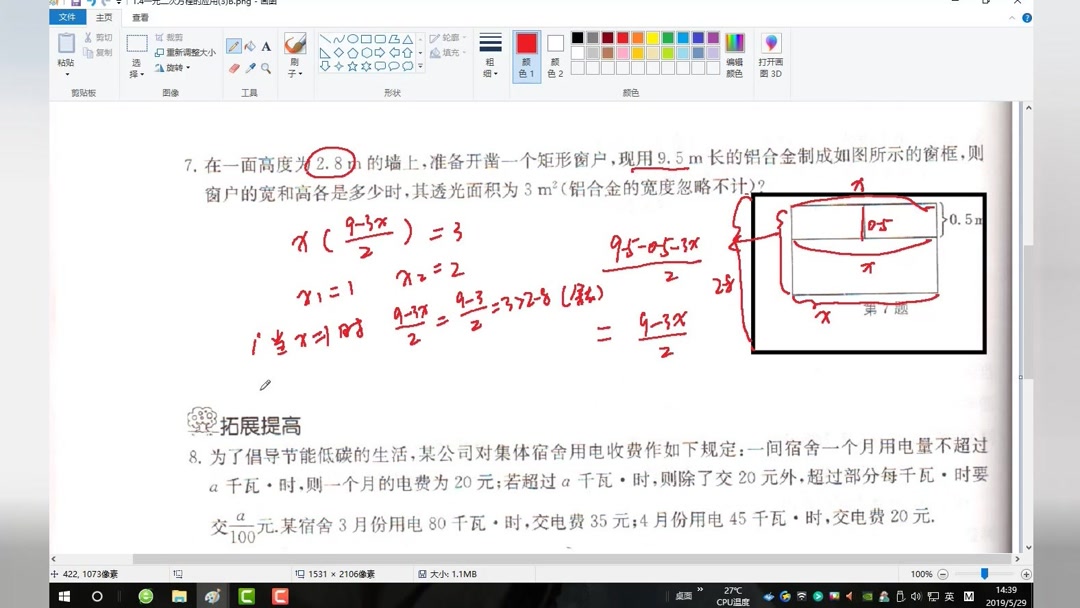 1.4一元二次方程的应用(3)B.png - 画图
文件 主页 查看
粘贴 剪切 复制 选择 裁剪 重新调整大小 旋转 刷子 轮廓 填充 粗细 颜色1 颜色2 编辑颜色 打开画图 3D
剪贴板 图像 工具 形状 颜色
7. 在一面高度为 2.8 m 的墙上,准备开凿一个矩形窗户,现用 9.5 m 长的铝合金制成如图所示的窗框,则
窗户的宽和高各是多少时,其透光面积为 3 m²(铝合金的宽度忽略不计)?
x
0.5
0.5m
x
2.8
x
第 7 题
x(9-3x/2)=3
x₁=1 x₂=2
9.5-0.5-3x/2
=9-3x/2
当x=1时 9-3x/2=9-3/2=3>2.8(舍去)
拓展提高
8. 为了倡导节能低碳的生活,某公司对集体宿舍用电收费作如下规定:一间宿舍一个月用电量不超过
a 千瓦·时,则一个月的电费为 20 元;若超过 a 千瓦·时,则除了交 20 元外,超过部分每千瓦·时要
交a/100元.某宿舍 3 月份用电 80 千瓦·时,交电费 35 元;4 月份用电 45 千瓦·时,交电费 20 元.
422, 1073像素 1531 × 2106像素 大小: 1.1MB 100%
桌面 27℃ CPU温度 英 M 14:39 2019/5/29